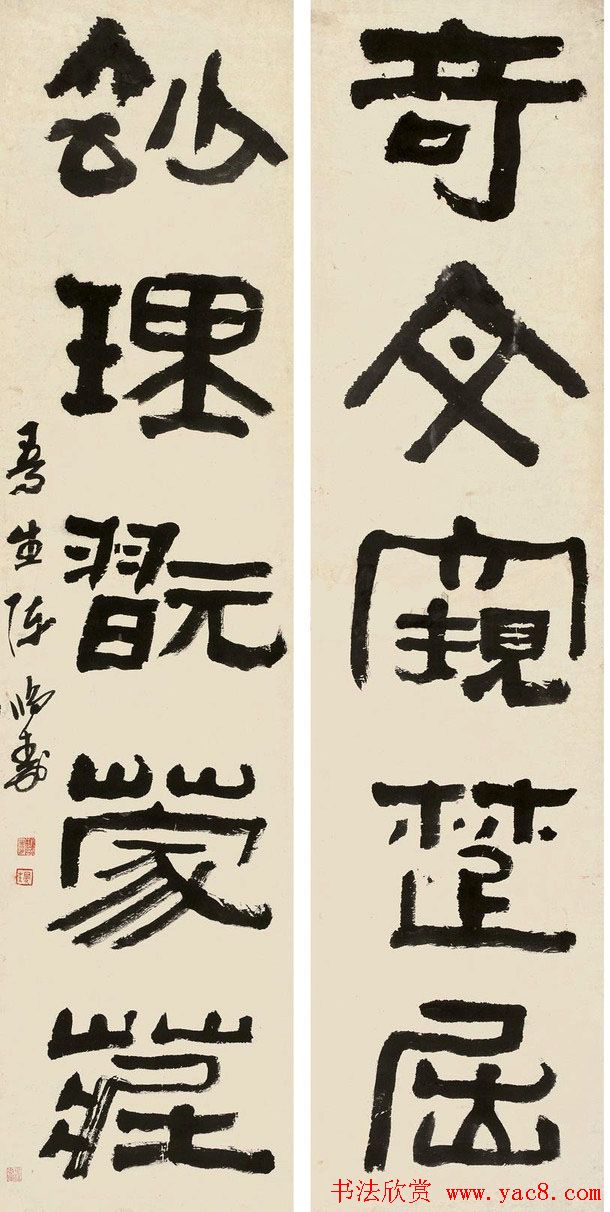 奇文窺楚屈
玅理翫蒙莊
曼生陳鴻壽
书法欣赏 www.yac8.com